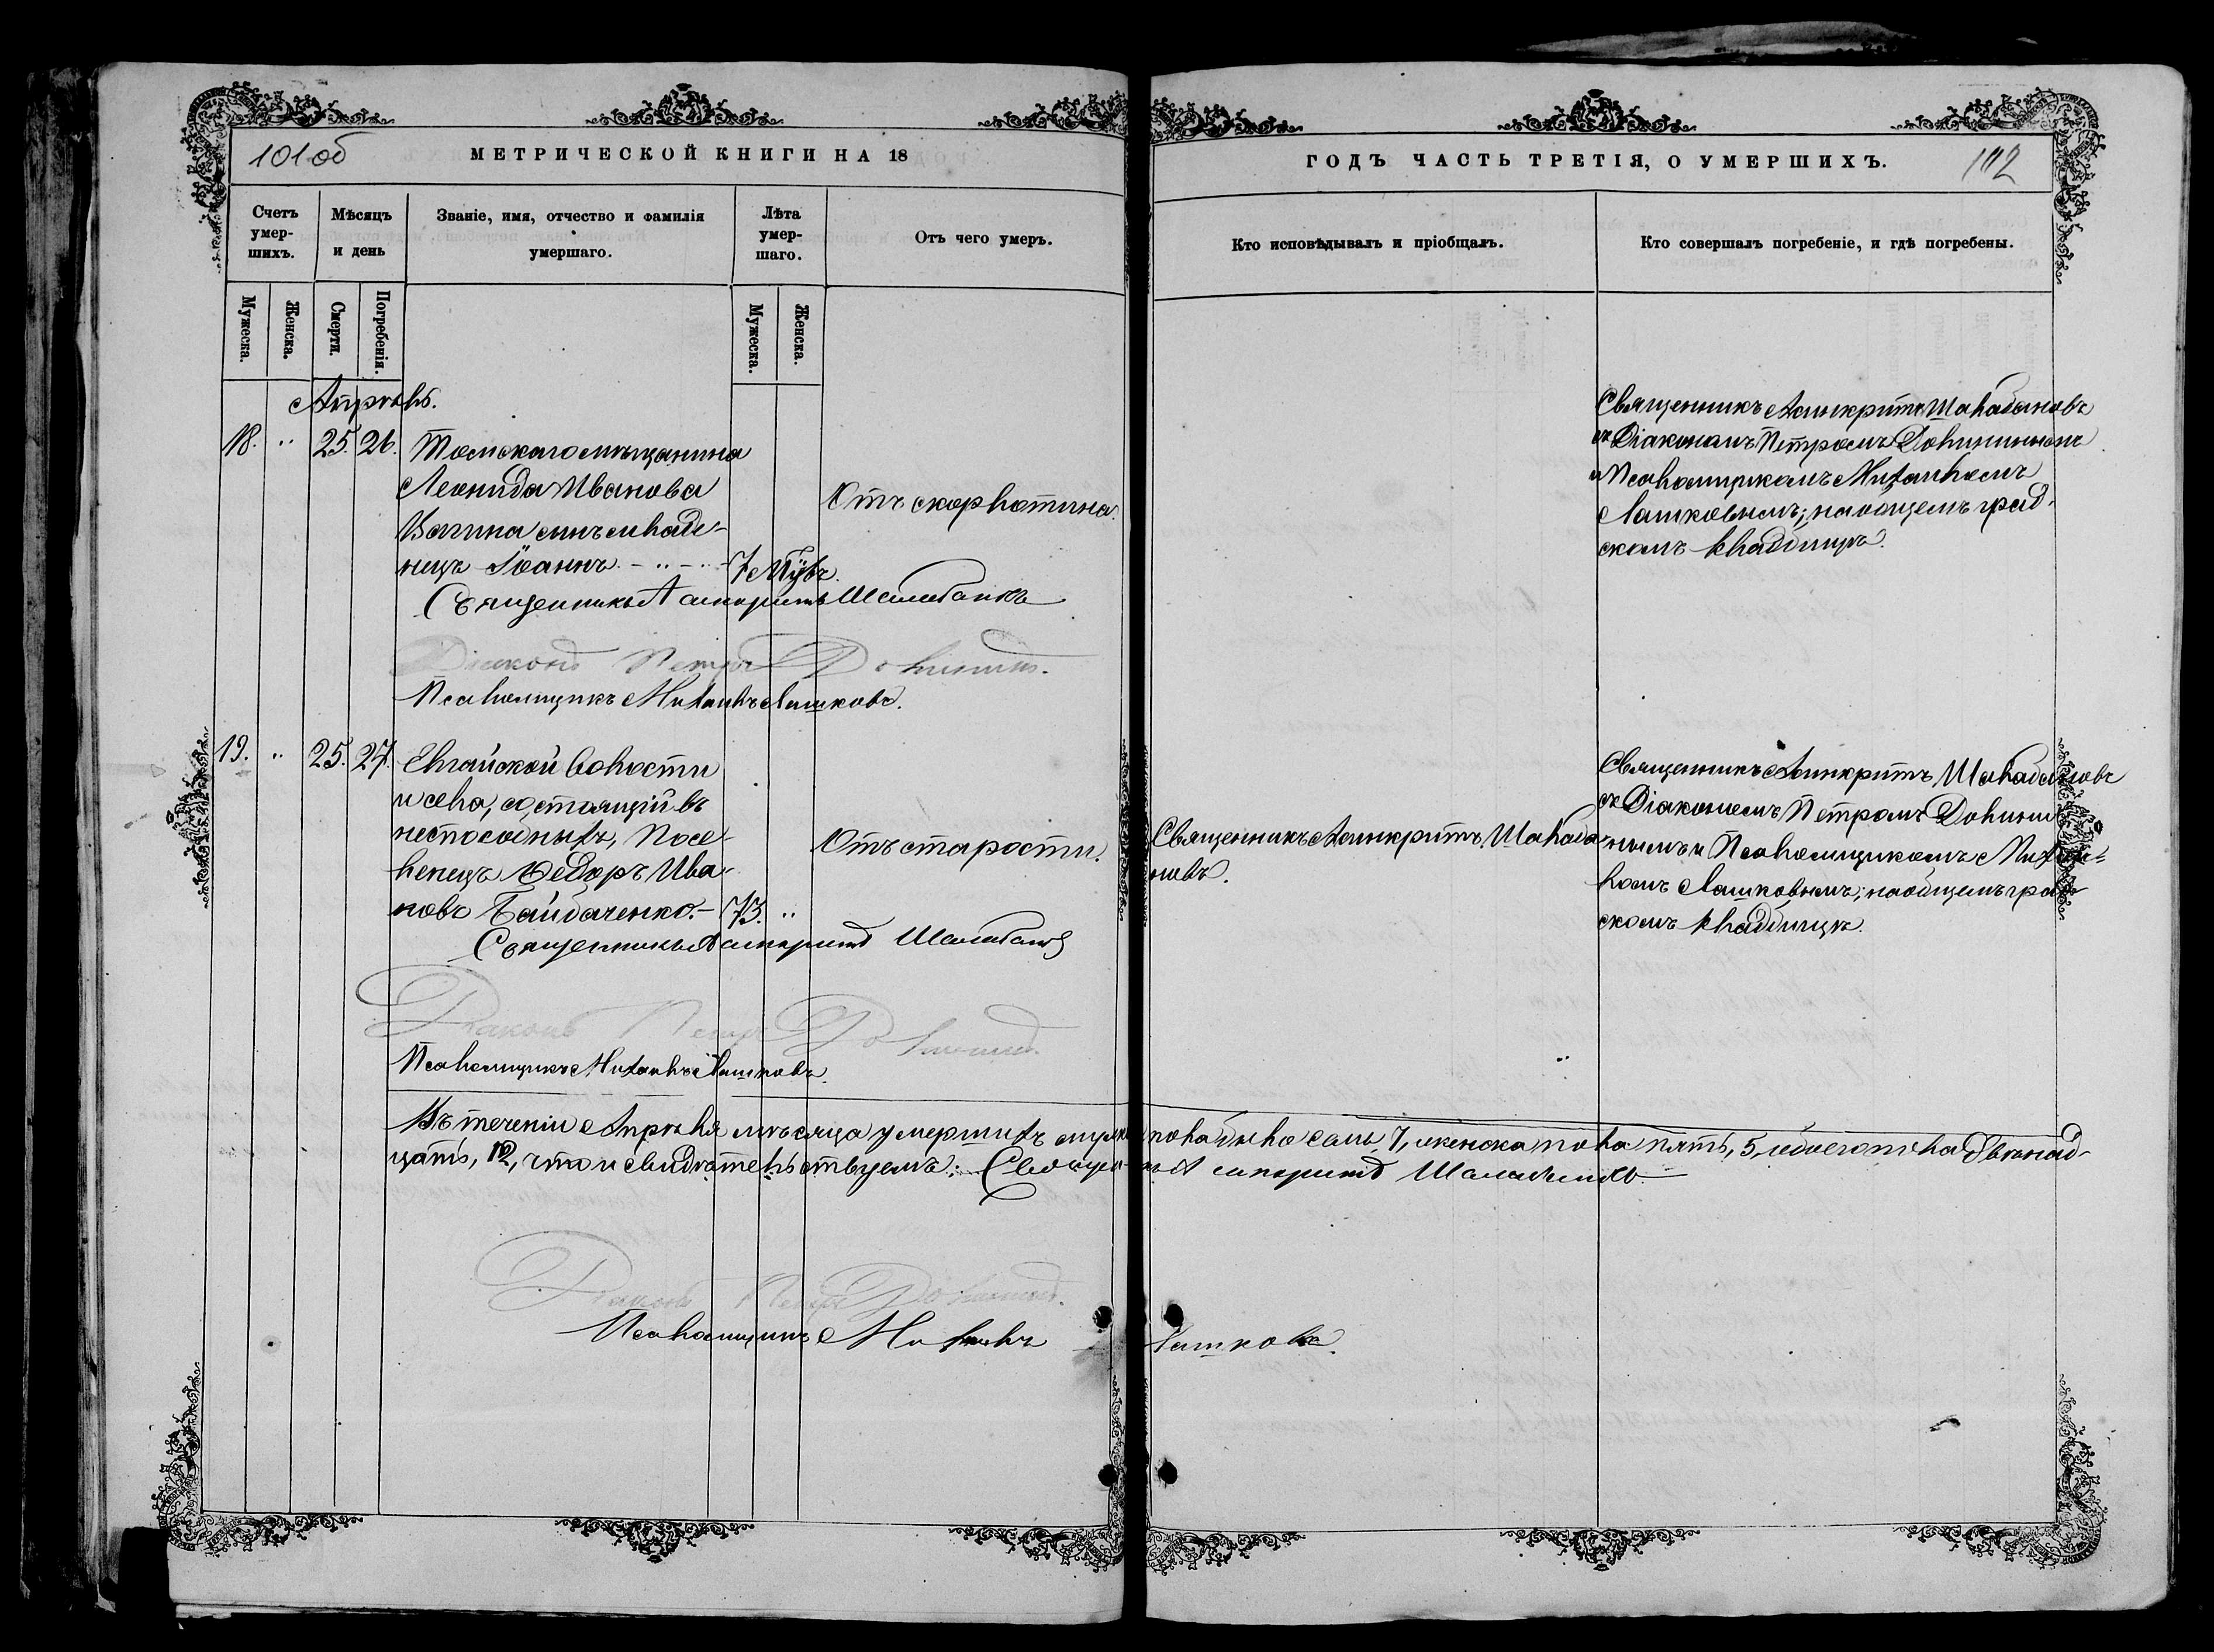 101 об
МЕТРИЧЕСКОЙ КНИГИ НА 18
ГОДЪ ЧАСТЬ ТРЕТІЯ, О УМЕРШИХЪ.
102
Счетъ умер-шихъ.
Мѣсяцъ и день
Званіе, имя, отчество и фамилія умершаго.
Лѣта умер-шаго.
Отъ чего умеръ.
Кто исповѣдывалъ и пріобщалъ.
Кто совершалъ погребеніе, и гдѣ погребены.
Мужеска.
Женска.
Смерти.
Погребенія.
Мужеска.
Женска.
Апрѣль.
18. " 25. 26. Томскаго мѣщанина
Леонида Иванова
Вагина сынъ младе-
нецъ Іоаннъ. 7 мѣс.
Отъ скорлотина.
Священникъ Асинкритъ Шалабановъ
съ Діакономъ Петромъ Долининымъ
и Псаломщикомъ Михаиломъ
Лашковымъ; на общемъ град-
скомъ кладбищѣ.
Священникъ Асинкритъ Шалабановъ
Діаконъ Петръ Долининъ.
Псаломщикъ Михаилъ Лашковъ.
19. " 25. 27. Елгайской волости
и села, состоящій въ
неспособныхъ, посе-
ленецъ Ѳедоръ Ива-
новъ Байбаченко. 73. "
Отъ старости.
Священникъ Асинкритъ Шалаба-
новъ.
Священникъ Асинкритъ Шалабановъ
съ Діакономъ Петромъ Долини-
нымъ и Псаломщикомъ Михаи-
ломъ Лашковымъ; на общемъ град-
скомъ кладбищѣ.
Священникъ Асинкритъ Шалабановъ
Діаконъ Петръ Долининъ.
Псаломщикъ Михаилъ Лашковъ.
Въ теченіи Апрѣля мѣсяца умершихъ мужска пола было семь 7, женска пола пять, 5, обоего пола двѣнад-
цать, 12, что и свидѣтельствуемъ: Священникъ Асинкритъ Шалабановъ
Діаконъ Петръ Долининъ.
Псаломщикъ Михаилъ Лашковъ.